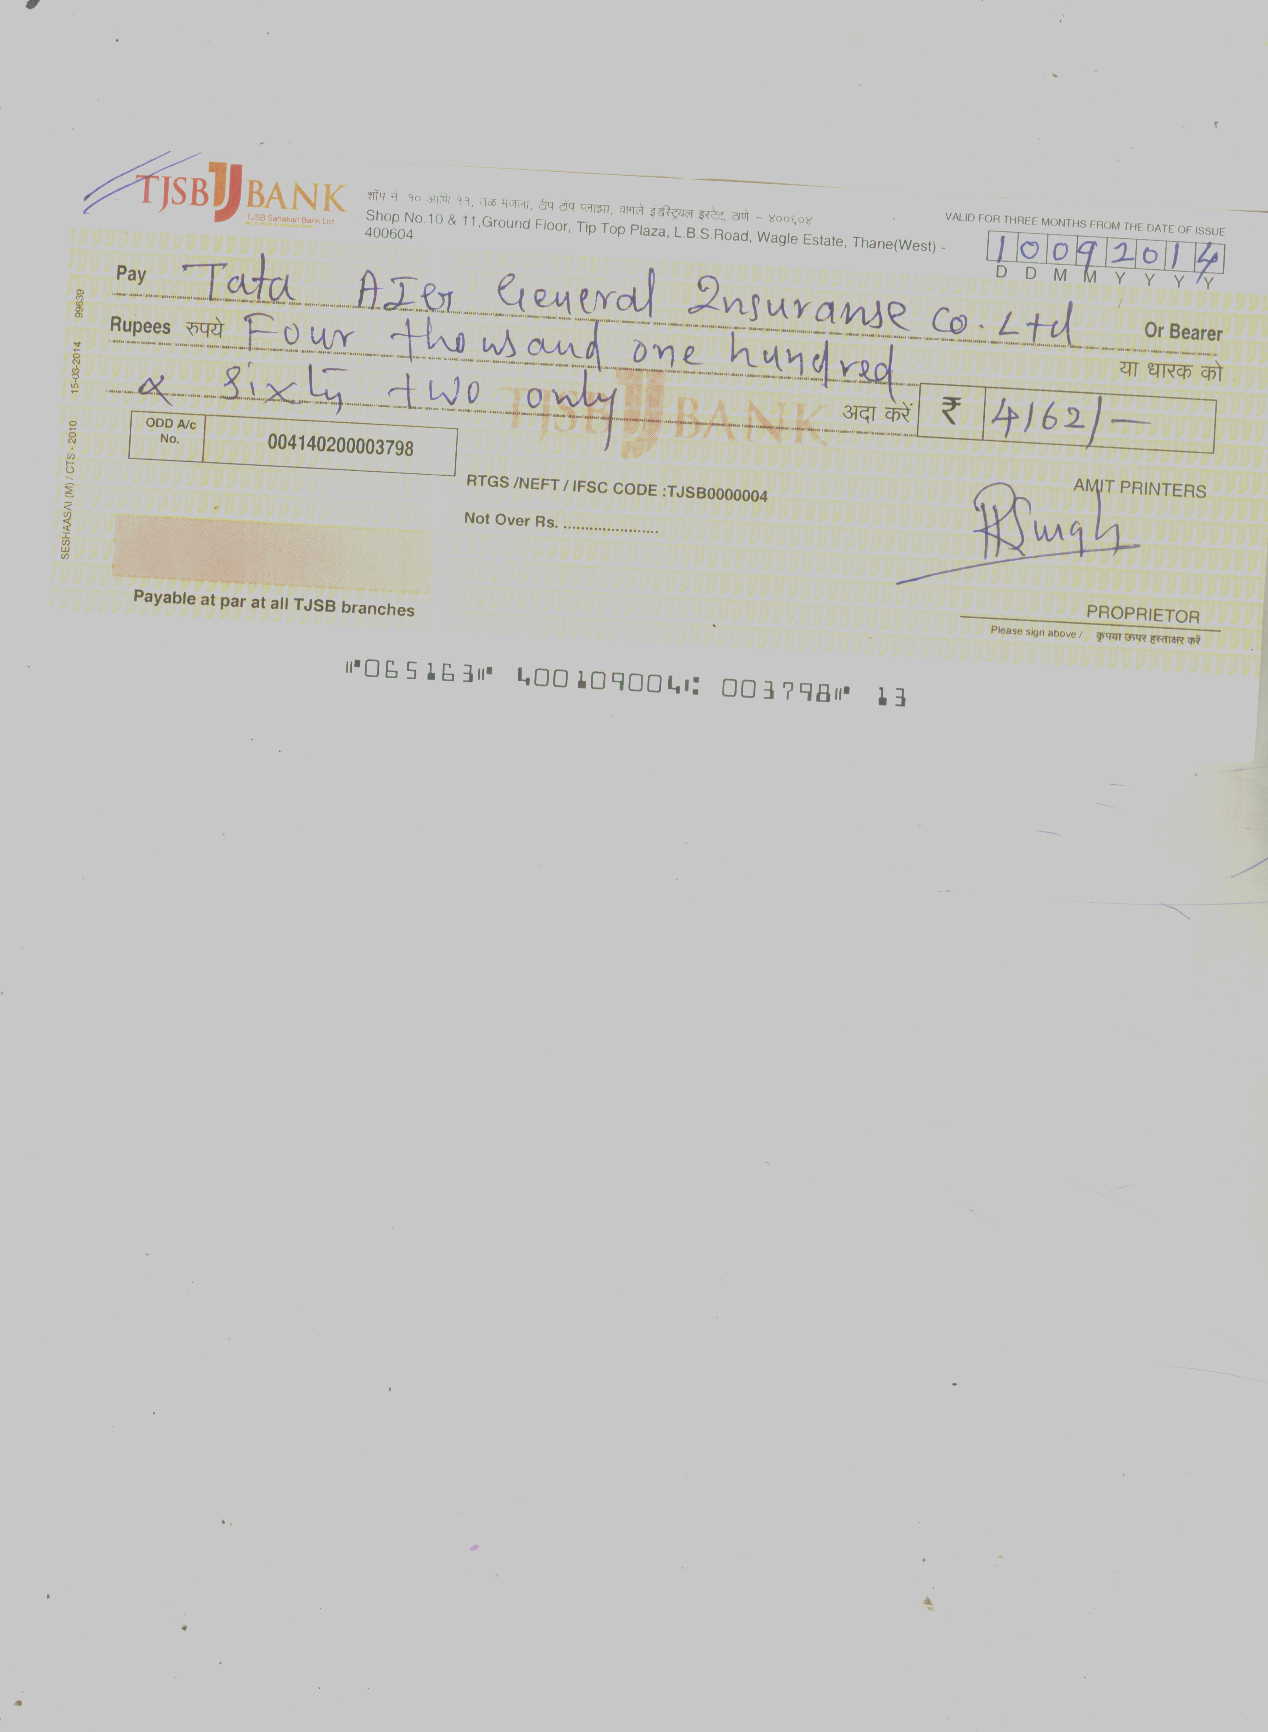 TJSB BANK
TJSB Sahakari Bank Ltd.
Shop No.10 & 11,Ground Floor, Tip Top Plaza, L.B.S.Road, Wagle Estate, Thane(West) -
400604
VALID FOR THREE MONTHS FROM THE DATE OF ISSUE
10092014
D D M M Y Y Y Y
Pay Tata AIG General Insuranse Co. Ltd Or Bearer
या धारक को
Rupees रुपये Four thousand one hundred
& sixty two only अदा करें ₹ 4162/-
TJSB BANK
ODD A/c No. 004140200003798
RTGS /NEFT / IFSC CODE :TJSB0000004
Not Over Rs. .....................
AMIT PRINTERS
Singh
PROPRIETOR
Please sign above / कृपया ऊपर हस्ताक्षर करें
Payable at par at all TJSB branches
SESHAASAI (M) / CTS - 2010 15-03-2014 99639
⑈065163⑈ 400109004⑆ 003798⑈ 13